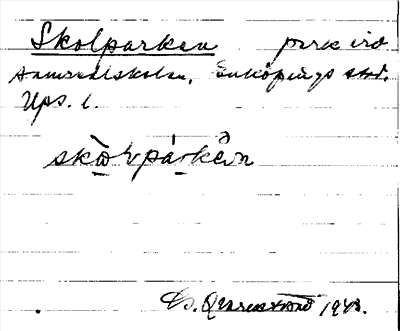 Skolparken park vid
Samrealskolan, Enköpings stad.
Ups. l.
skòlpárkən
1943.